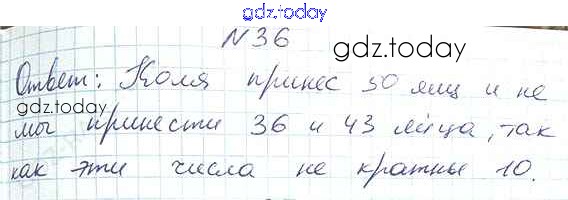 gdz.today
N 36
gdz.today
Ответ: Коля принес 50 яиц и не
gdz.today
мог принести 36 и 43 яйца, так
как эти числа не кратны 10.